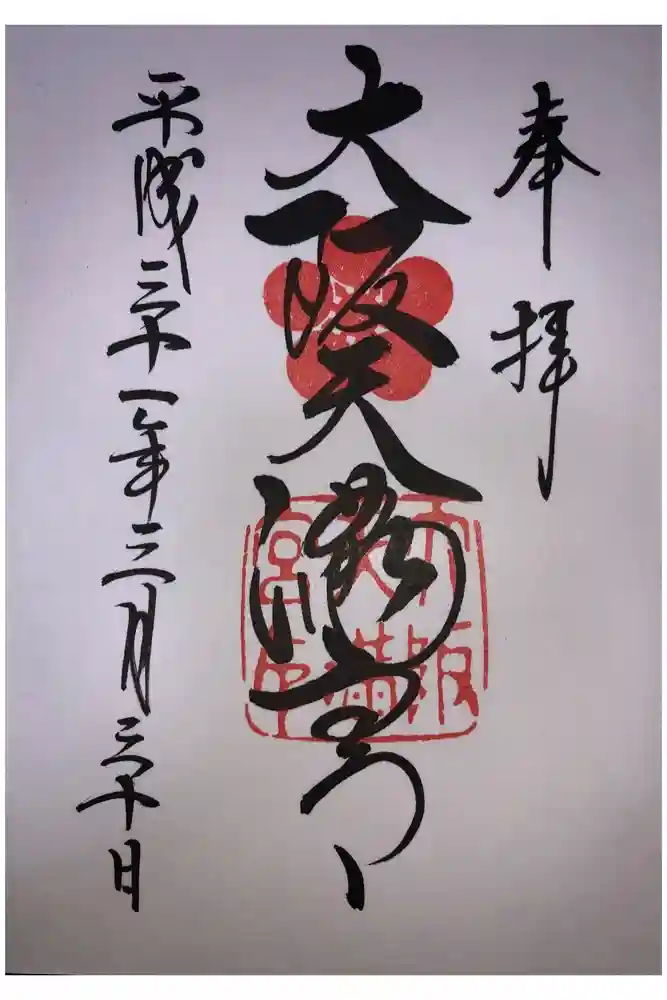 奉拝
大阪天満宮
大阪天満宮印
平成三十一年三月三十日